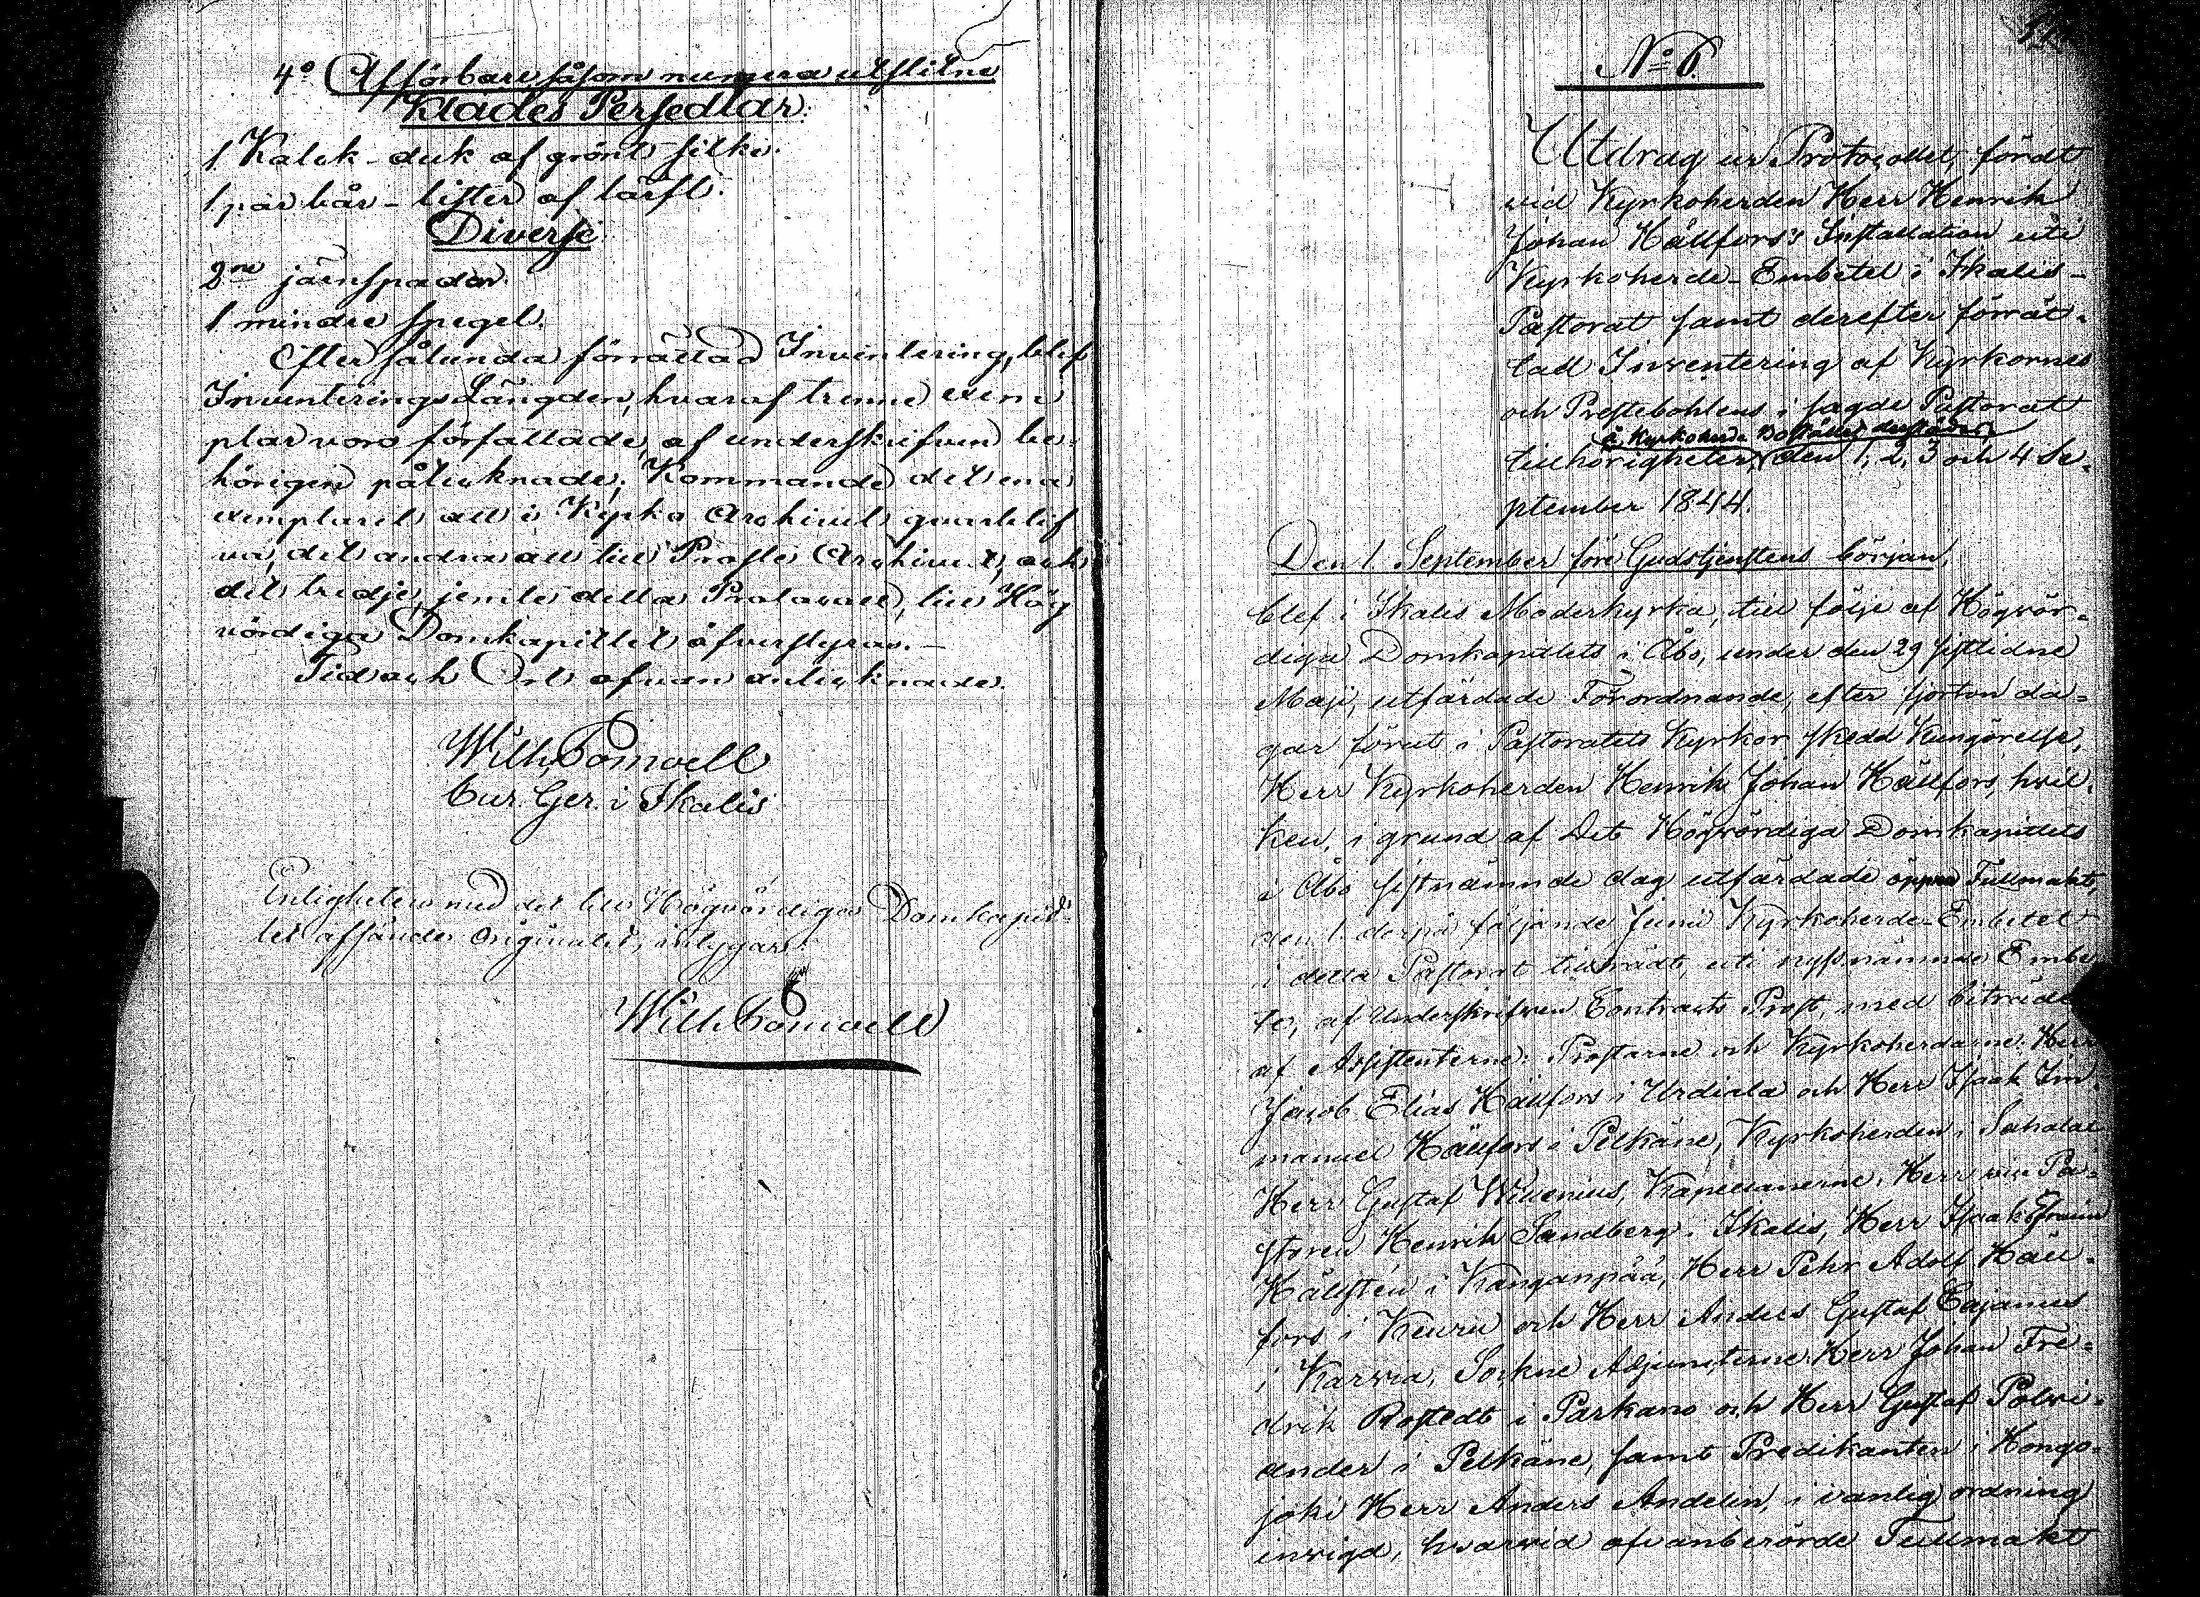 4o Afförbare, såsom numera utslitne
Klädes Persedlar.
1 Kalk-duk af grönt silke.
1 par bår-lister af lärft.
Diverse
2ne järnspadar.
1 mindre spegel.
Efter sålunda förrättad Inventering, blef
Inventerings Längden, hvaraf trenne exem
plar voro författade, af underskrifven be-
hörigen påtecknade; Kommande det ena
exemplaret att i Kyrko Archivet qvarblif
va, det andra att till Proste Archivet, och
det tredje, jemte detta Protocoll, till Hög
vördiga Domkapitlet öfverstyras.
Tid och Ort ofvan antecknade.
Wilh.
Cur. Ger. i Ikalis
Enligheten med det till Högvördiga Domkapit-
let afsända originalet, intygar
Wilh.
No 6.
Utdrag ur Protocollet, fördt
vid Kyrkoherden Herr Henrik
Johan Hällfors's Installation uti
Kyrkoherde-Embetet i Ikalis-
Pastorat samt derefter förrät-
tad Inventering af Kyrkornes
och Prestebohlens i sagde Pastorat
å Kyrkoherde Bostället derstädes
tillhörigheter, den 1, 2, 3 och 4 Se-
ptember 1844.
Den 1. September före Gudstjenstens början,
blef i Ikalis Moderkyrka, till följe af Högvör-
diga Domkapitlets i Åbo, under den 29 sisttidne
Maji, utfärdade Förordnande, efter fjorton da-
gar förut i Pastoratets Kyrkor skedd Kungörelse,
Herr Kyrkoherden Henrik Johan Hällfors, hvil-
ken, i grund af Det Högvördiga Domkapitlets
i Åbo sistnämnde dag utfärdade öppna Fullmakt,
den 1. derpå följande Junii Kyrkoherde-Embetet
i detta Pastorat tillträdt, uti nyssnämnde Embe
te, af Underskrifven Contracts Prost, med biträde
af Assistenterne: Prostarne och Kyrkoherdarne: Herr
Jacob Elias Hällfors i Urdiala och Herr Isaak Im-
manuel Hällfors i Pelkäne, Kyrkoherden i Sahalax
Herr Gustaf Willenius, Kapellanerne: Herr vice Pa-
storen Henrik Sandberg i Ikalis, Herr Isaak Efraim
Hällstén i Kanganpää, Herr Pehr Adolf Häll-
fors i Keuru och Herr Anders Gustaf Cajanus
i Karvia, Sockne Adjuncterne: Herr Johan Fre-
drik Rostedt i Parkano och Herr Gustaf Polvi-
ander i Pelkäne, samt Predikanten i Hongo-
joki Herr Anders Andelin, i vanlig ordning
invigd, hvarvid ofvanberörde Fullmakt